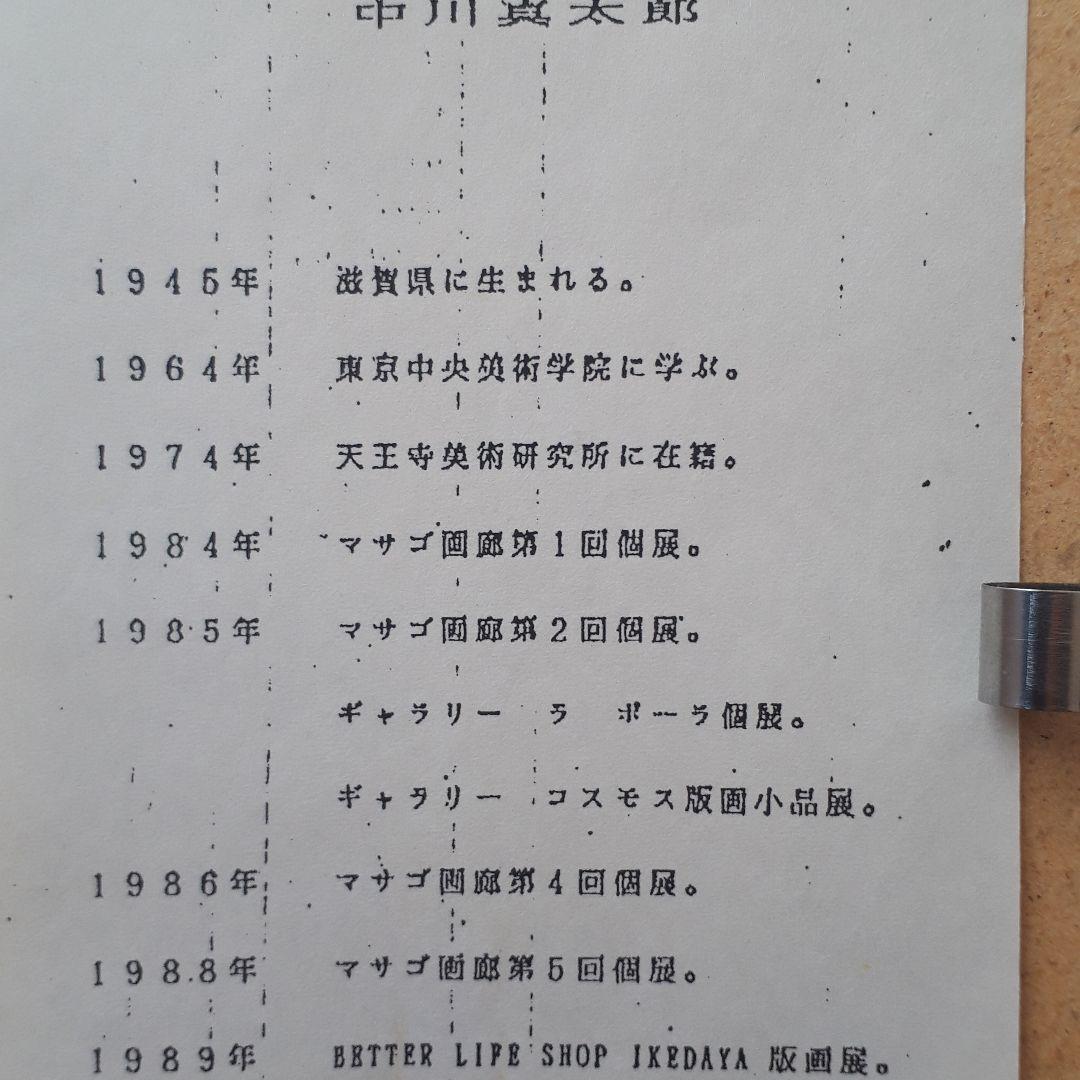 中川貴太郎
1945年 滋賀県に生まれる。
1964年 東京中央美術学院に学ぶ。
1974年 天王寺美術研究所に在籍。
1984年 マサゴ画廊第1回個展。
1985年 マサゴ画廊第2回個展。
ギャラリー ラ ポーラ個展。
ギャラリー コスモス版画小品展。
1986年 マサゴ画廊第4回個展。
1988年 マサゴ画廊第5回個展。
1989年 BETTER LIFE SHOP IKEDAYA 版画展。